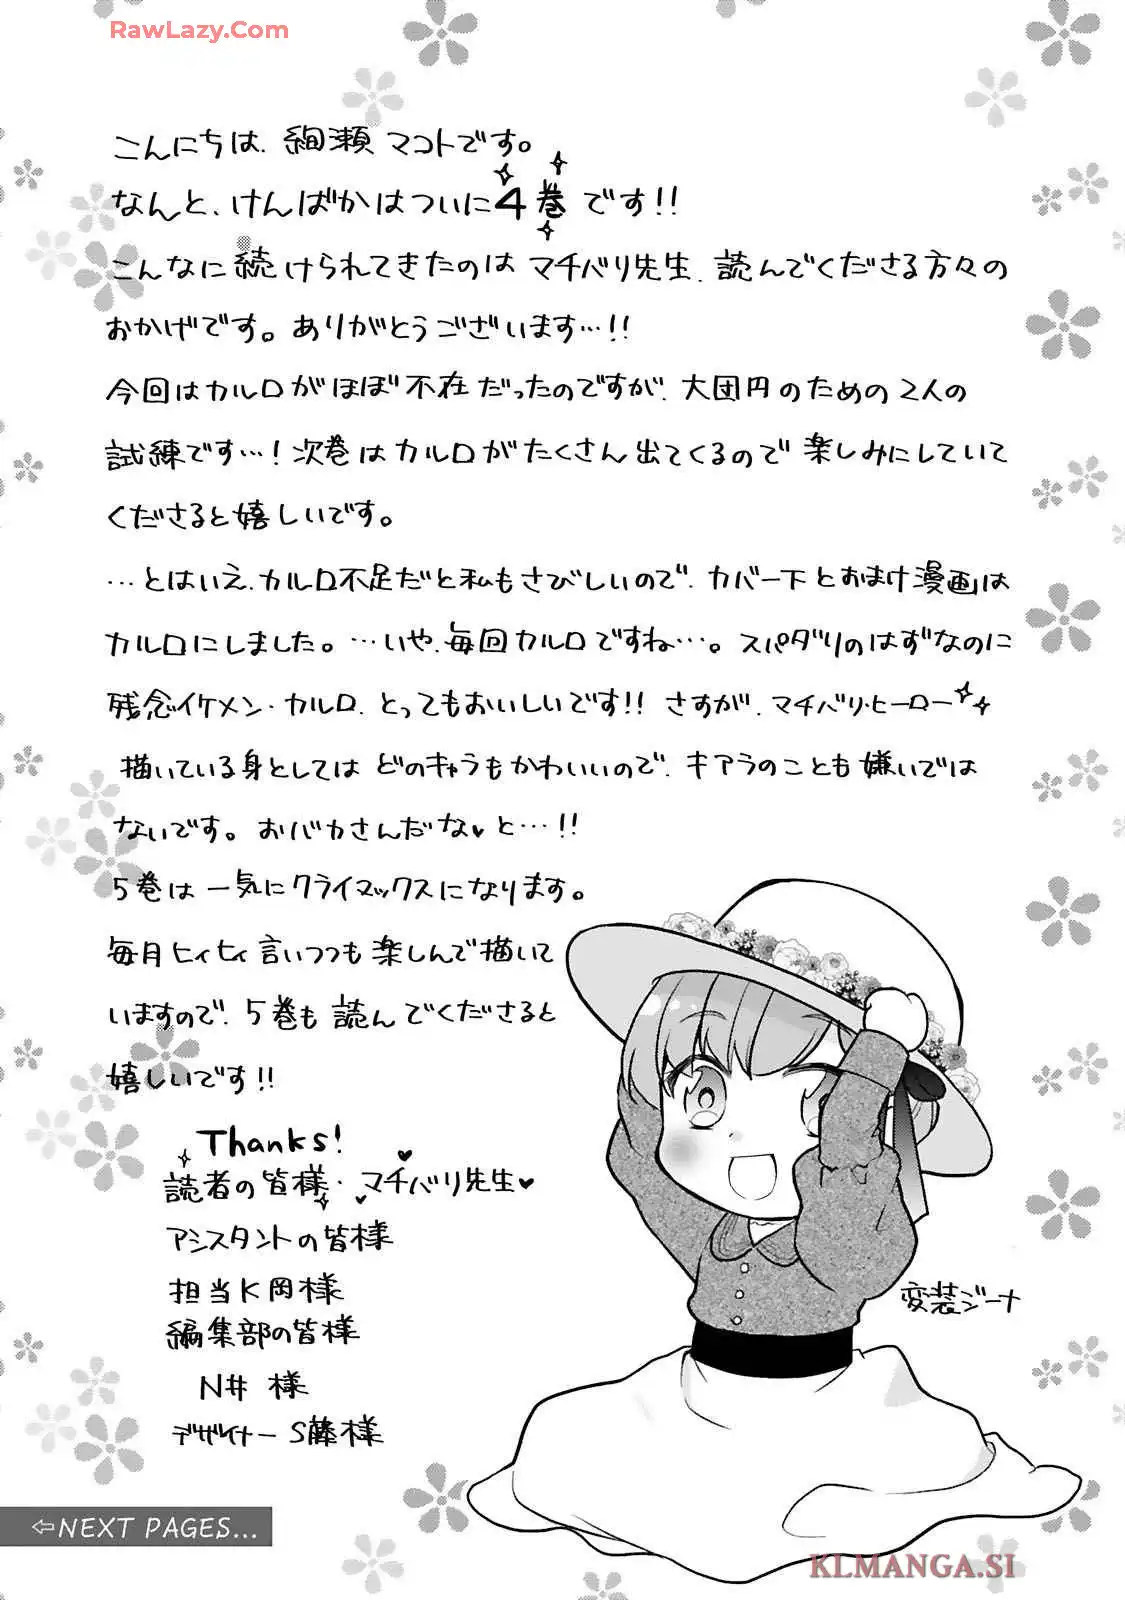 RawLazy.Com
こんにちは、絢瀬マコトです。
なんと、けんばかはついに4巻です!!
こんなに続けられてきたのはマチバリ先生、読んでくださる方々の
おかげです。ありがとうございます…!!
今回はカルロがほぼ不在だったのですが、大団円のための2人の
試練です…!次巻はカルロがたくさん出てくるので楽しみにしていて
くださると嬉しいです。
…とはいえ、カルロ不足だと私もさびしいので、カバー下とおまけ漫画は
カルロにしました。…いや、毎回カルロですね…。スパダリのはずなのに
残念イケメン・カルロ、とってもおいしいです!!さすが、マチバリ・ヒーロー
描いている身としてはどのキャラもかわいいので、キアラのことも嫌いでは
ないです。おバカさんだな♥と…!!
5巻は一気にクライマックスになります。
毎月ヒィヒィ言いつつも楽しんで描いて
いますので、5巻も読んでくださると
嬉しいです!!
Thanks!
読者の皆様・マチバリ先生♥
アシスタントの皆様
担当K岡様
編集部の皆様
N井様
デザイナーS藤様
変装ジーナ
⇦NEXT PAGES...
KLMANGA.SI